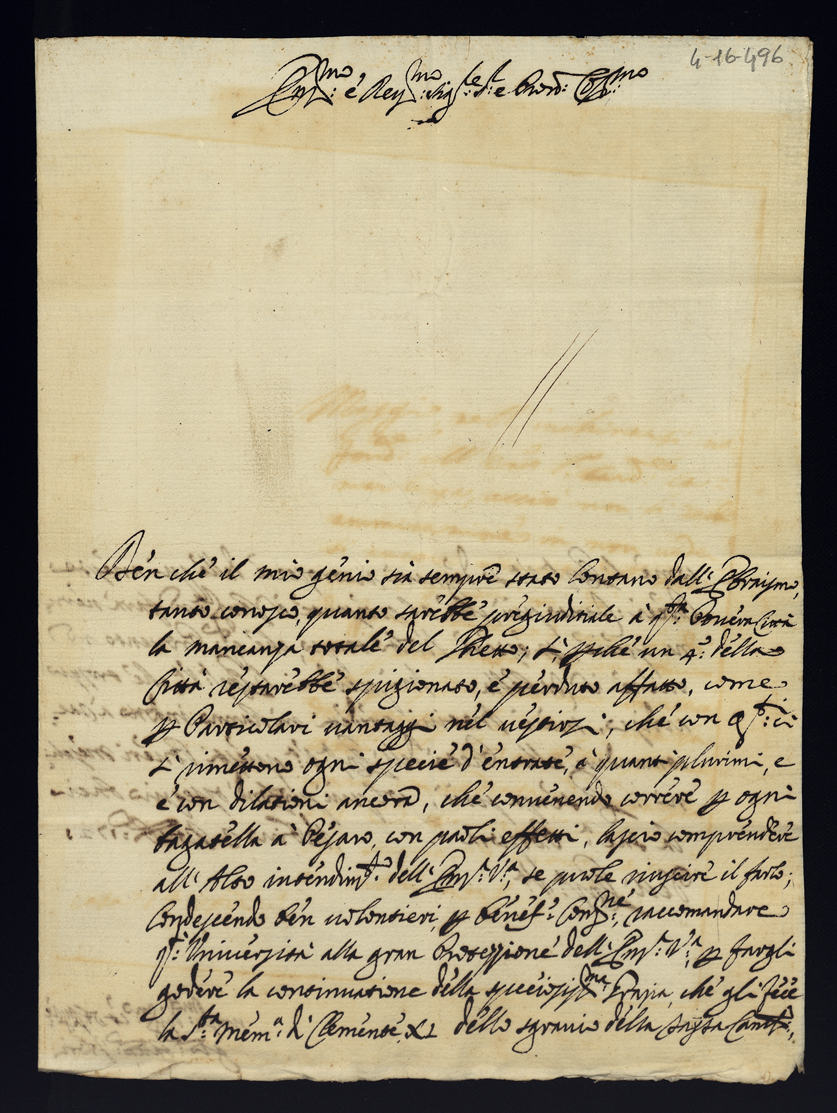 4-16-496
Em̃:mo e Reu:mo Sig:re Sr: e Pron: Col:mo
Ben che il mio genio sia sempre stato lontano dall'Ebraismo,
tanto conosco, quanto sarebbe pregiuditiale à q:sta Povera Città
la mancanza totale del Ghetto; sì, pche un 4:o della
Città restarebbe spigionato, e perduto affatto, come
p Particolari vantaggi nel che con q:sti ci
si rimettono ogni specie d'entrate, à quanti plurimi, e
e con dilationi ancora, che convenendo correre p ogni
bagatella à Pesaro, con pochi effetti, lascio comprendere
all'Alto intendim:to dell'Em:a V:a, se puole riuscire il farlo;
Condescendo ben volontieri, p benef:o Com̃ne, raccomandare
q:a Università alla gran Protezzione dell'Em:a V:a, p fargli
godere la continuatione della speciosiss:ma Grazia, che gli fece
la S:ta Mem:a di Clemente XI dello sgravio della Tassa